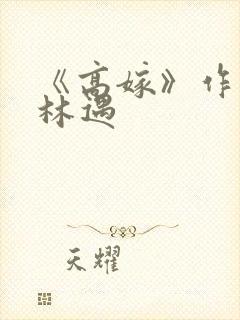 《高嫁》作
林遇
天耀